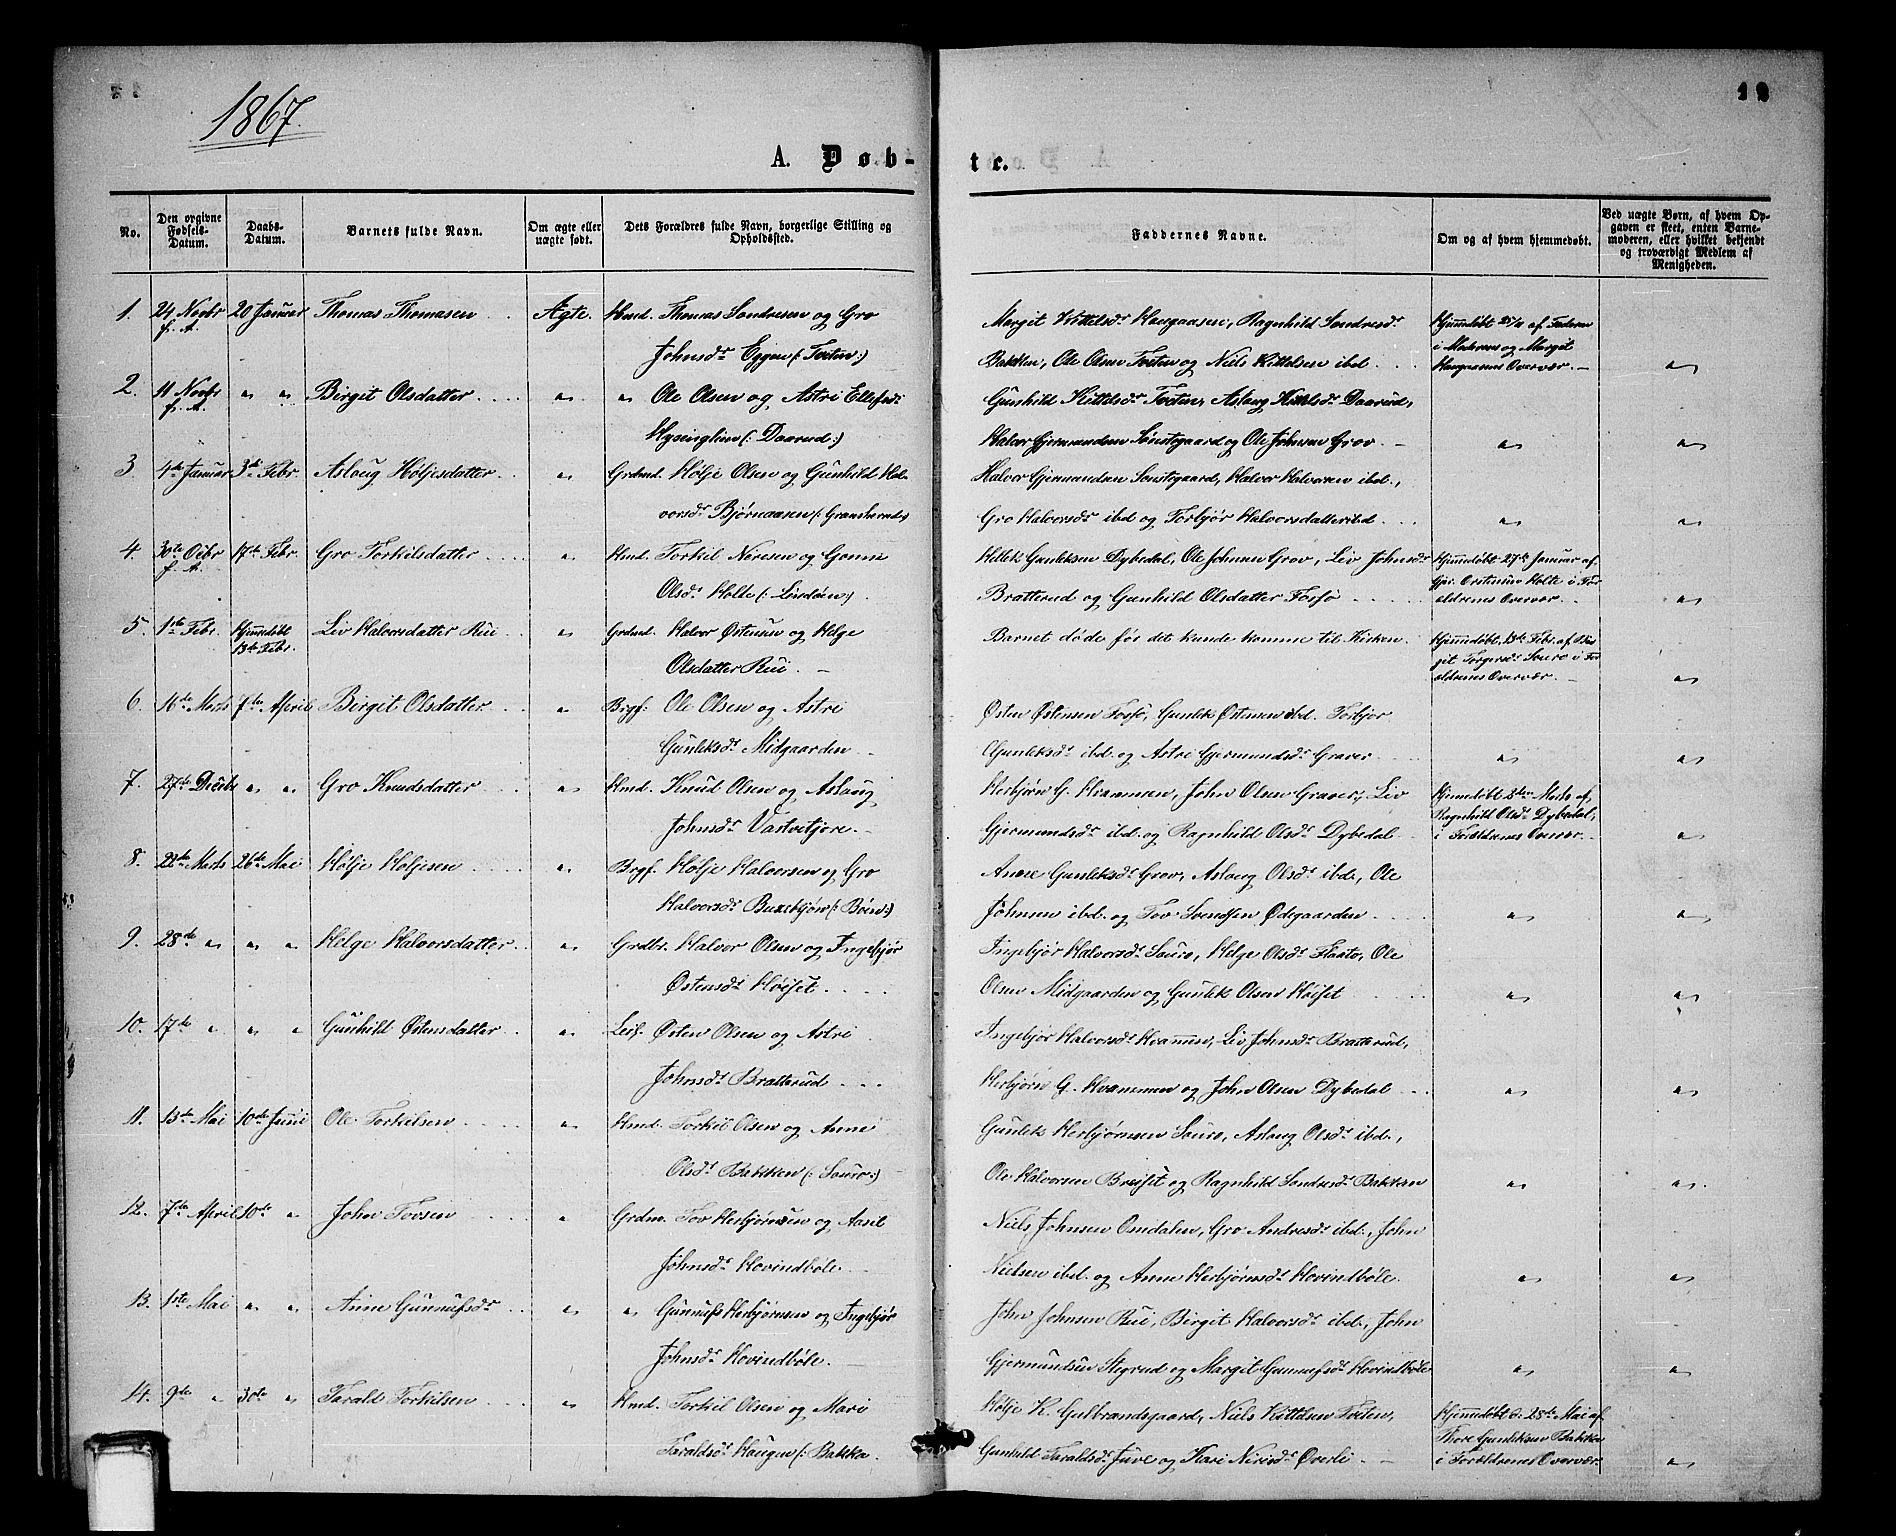 1867.
A. Døb-
te.
No.
Den opgivne Fødsels-Datum.
Daabs-Datum.
Barnets fulde Navn.
Om ægte eller uægte født.
Dets Forældres fulde Navn, borgerlige Stilling og Opholdssted.
Faddernes Navne.
Om og af hvem hjemmedøbt.
Ved uægte Børn, af hvem Opgaven er skeet, enten Barnemoderen, eller hvilket bekjendt og troværdigt Medlem af Menigheden.
1. 24 Novbr f. A. 20 Januar Thomas Thomassen Ægte. Hmd. Thomas Sondresen og Gro
Johnsdr. Eggen (: Tveten:)
Margit Kittelsdr. Haugaasen, Ragnhild Sondresdr.
Bakken, Ole Olsen Tveten og Niels Kittelsen ibd
Hjemmedøbt 25/11 af Faderen
i Moderens og Margit
Haugaasens Overvær. -
2. 11 Novbr f. A. " " Birgit Olsdatter " " Ole Olsen og Astri Ellefsdr.
Hysinglien (: Daarud:)
Gunhild Kittelsdr. Tveten, Aslaug Kittelsdr. Daarud,
Halvor Gjermundsen Sønstegaard og Ole Johnsen Grov. -
3 4de Januar 3de Febr. Aslaug Høljesdatter " Grdmd. Hølje Olsen og Gunhild Hal-
vorsdr. Bjørnaasen (: Gransherred:)
Halvor Gjermundsen Sønstegaard, Halvor Halvorsen ibd.,
Gro Halvorsdr. ibd og Torbjør Halvorsdatter ibd
4. f. A. 17de Febr. Gro Torkilsdatter " Hmd. Torkil Niresen og Gonne
Olsdr. Holte (: Lindøen:)
Hellek Gunleksen Dybedal, Ole Johnsen Grov, Liv Johnsdr.
Bratterud og Gunhild Olsdatter Fosfø
Hjemmedøbt 27de Januar af
Holte i For-
ældrenes Overvær.
5. 1ste Febr. Hjemmedøbt 13de Febr. Liv Halvorsdatter Rui " Grdmd. Halvor Østensen og Helge
Olsdatter Rui. -
Barnet døde før det kunde komme til Kirken.
Hjemmedøbt 13de Febr. af Bir-
git Torgersdr. Sauro i For-
ældrenes Overvær. -
6. 16de Marts 7de April Birgit Olsdatter " Bygf. Ole Olsen og Astri
Gunleksdr. Midgaarden
Østen Østensen Fosfø, Gunlek Østensen ibd. Torbjør
Gunleksdr. ibd og Astri Gjermundsdr. Graver
7. 27de Decbr " " Gro Knudsdatter " Hmd. Knud Olsen og Aslaug
Johnsdr. Vastveitjøre. -
Herbjørn G. Kvammen, John Olsen Graver, Liv
Gjermundsdr. ibd. og Ragnhild Olsdr. Dybedal
Hjemmedøbt Marts af
Ragnhild Olsdr. Dybedal,
i Forældrenes Overvær.
8. 22de Marts 26de Mai Hølje Høljesen " Bygf. Hølje Halvorsen og Gro
Halvorsdr. Buxebjøn (: Bøen:)
Anne Gunleksdr. Grov, Aslaug Olsdr. ibd., Ole
Johnsen ibd. og Tov Svendsen Ødegaarden
9. 28de " " " Helge Halvorsdatter " Grdbr. Halvor Olsen og Ingebjør
Østensdr. Høiset
Ingebjør Halvorsdr. Sauro, Helge Olsdr. Flaato, Ole
Olsen Midgaarden og Gunlek Olsen Høiset
10. 17de " " " Gunhild Østensdatter " Leif. Østen Olsen og Astri
Johnsdr. Bratterud
Ingebjør Halvorsdr. Kvammen, Liv Johnsdr. Bratterud,
Herbjørn G. Kvammen og John Olsen Dybedal
11. 13de Mai 10de Juni Ole Torkilsen " Hmd. Torkil Olsen og Anne
Olsdr. Bakken (: Sauro:)
Gunlek Herbjørnsen Sauro, Aslaug Olsdr. ibd.,
Ole Halvorsen Breiset og Ragnhild Sondresdr. Bakken
12. 7de April 10de " John Tovsen " Grdm. Tov Herbjørnsen og Aasil
Johnsdr. Hovindbøle.
Niels Johnsen Omdalen, Gro Andresdr. ibd., John
Nielsen ibd. og Anne Herbjørnsdr. Hovindbøle.
13. 1ste Mai " " Anne Gunnufsdr. " " Gunnuf Herbjørnsen og Ingebjør
Johnsdr. Hovindbøle.
John Johnsen Rui, Birgit Halvorsdr. ibd., John
Gjermundsen Stegrud og Margit Gunnufsdr. Hovindbøle
14. 9de " 30de " Tarald Torkilsen " Hmd. Torkil Olsen og Mari
Taraldsdr. Haugen (: Bakka.
Hølje K. Gulbrandsgaard, Niels Kittelsen Tveten,
Gunhild Taraldsdr. Juve og Kari Niresdr. Øverli -
Hjemmedøbt d. 28de Mai af
Thore Gunleksen Bakken
i Forældrenes Overvær.